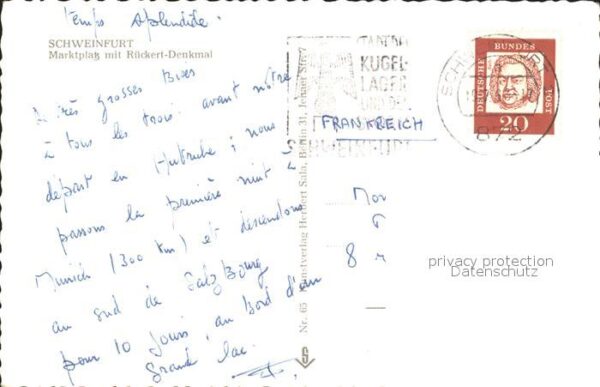 Temps splendide.
SCHWEINFURT
Marktplatz mit Rückert-Denkmal
Très grosses Bises
à tous les trois avant notre
départ en Autriche ; nous
passons la première nuit à
Munich (300 km) et descendons
au sud de Salzbourg
pour 10 jours au bord d'un
grand lac.
KUGEL-
LAGER
SCHWEINFURT
FRANKREICH
872
DEUTSCHE BUNDESPOST
20
Nr. 65 Kunstverlag Herbert Sala, Berlin 31, Jenaer Str. 7
Mon
8 r
privacy protection
Datenschutz